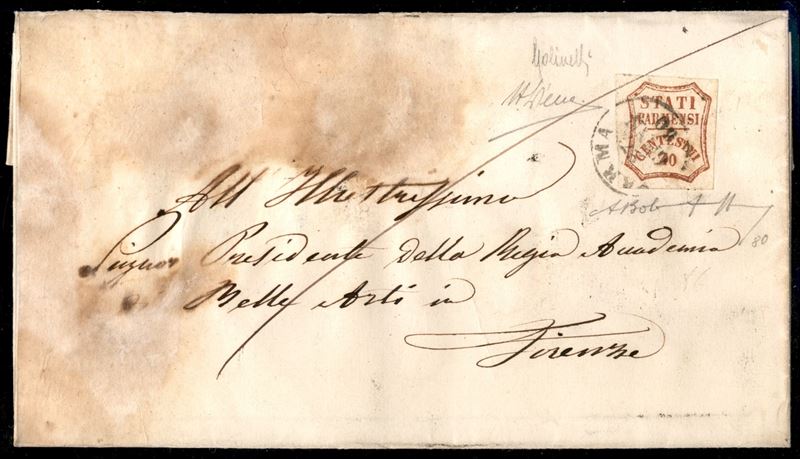 STATI
PARMENSI
CENTESIMI
20
PARMA
All Illustrissimo
Signor Presidente della Regia Accademia
Belle Arti in
Firenze
80